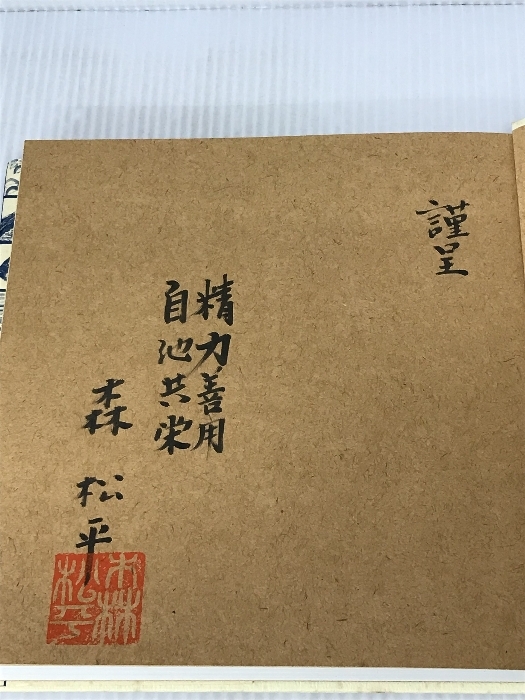 謹呈
精力善用
自他共栄
森 松平
森松平